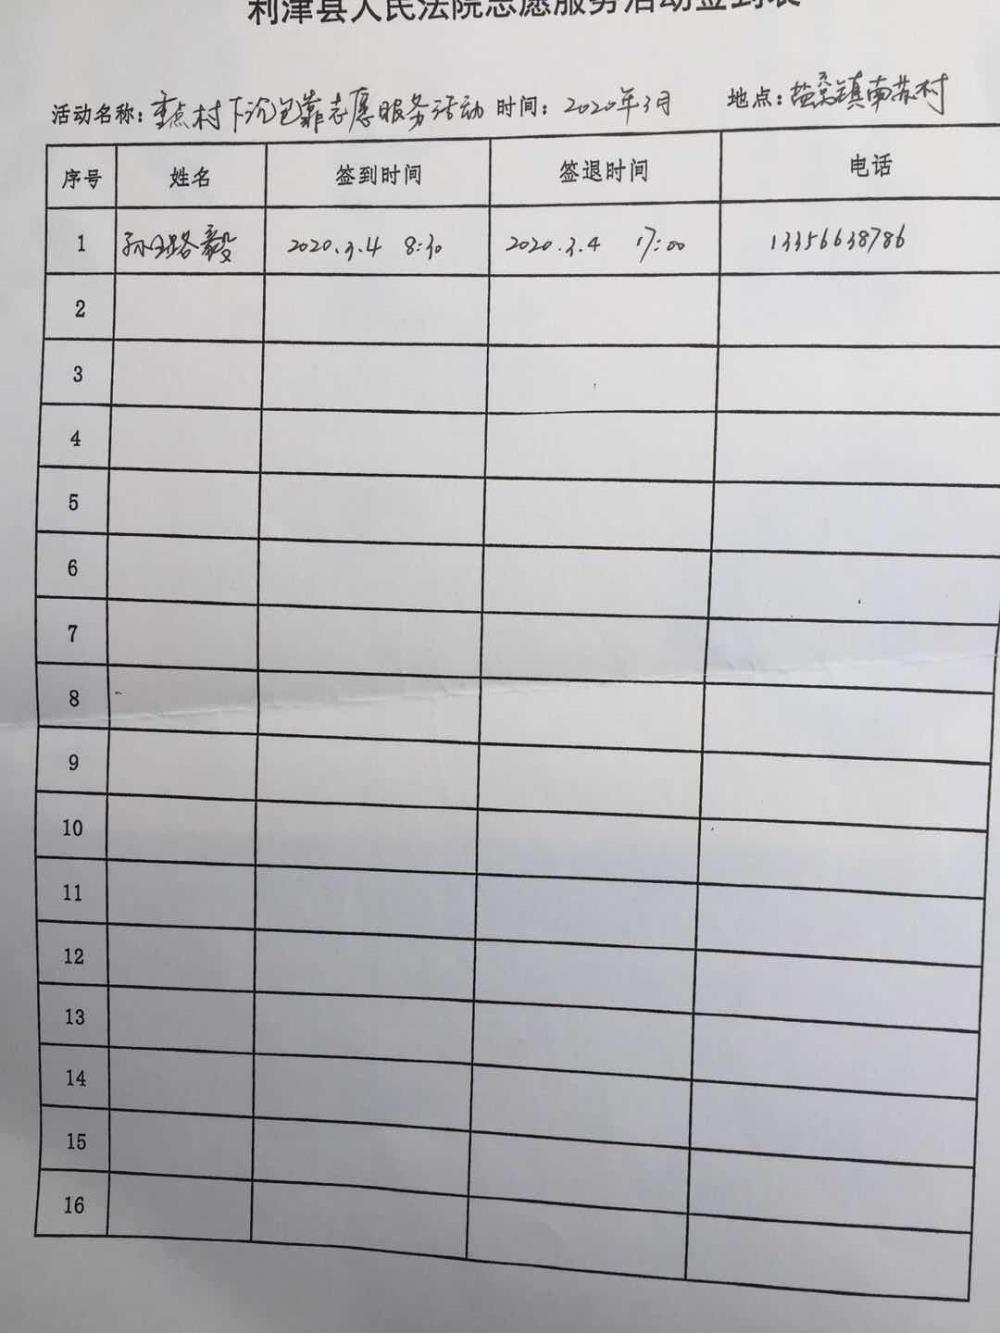 利津县人民法院志愿服务活动签到表
活动名称：重点村下沉包靠志愿服务活动 时间：2020年3月 地点：盐窝镇南苏村
序号 姓名 签到时间 签退时间 电话
1 孙路毅 2020.3.4 8:30 2020.3.4 17:00 13356638786
2
3
4
5
6
7
8
9
10
11
12
13
14
15
16